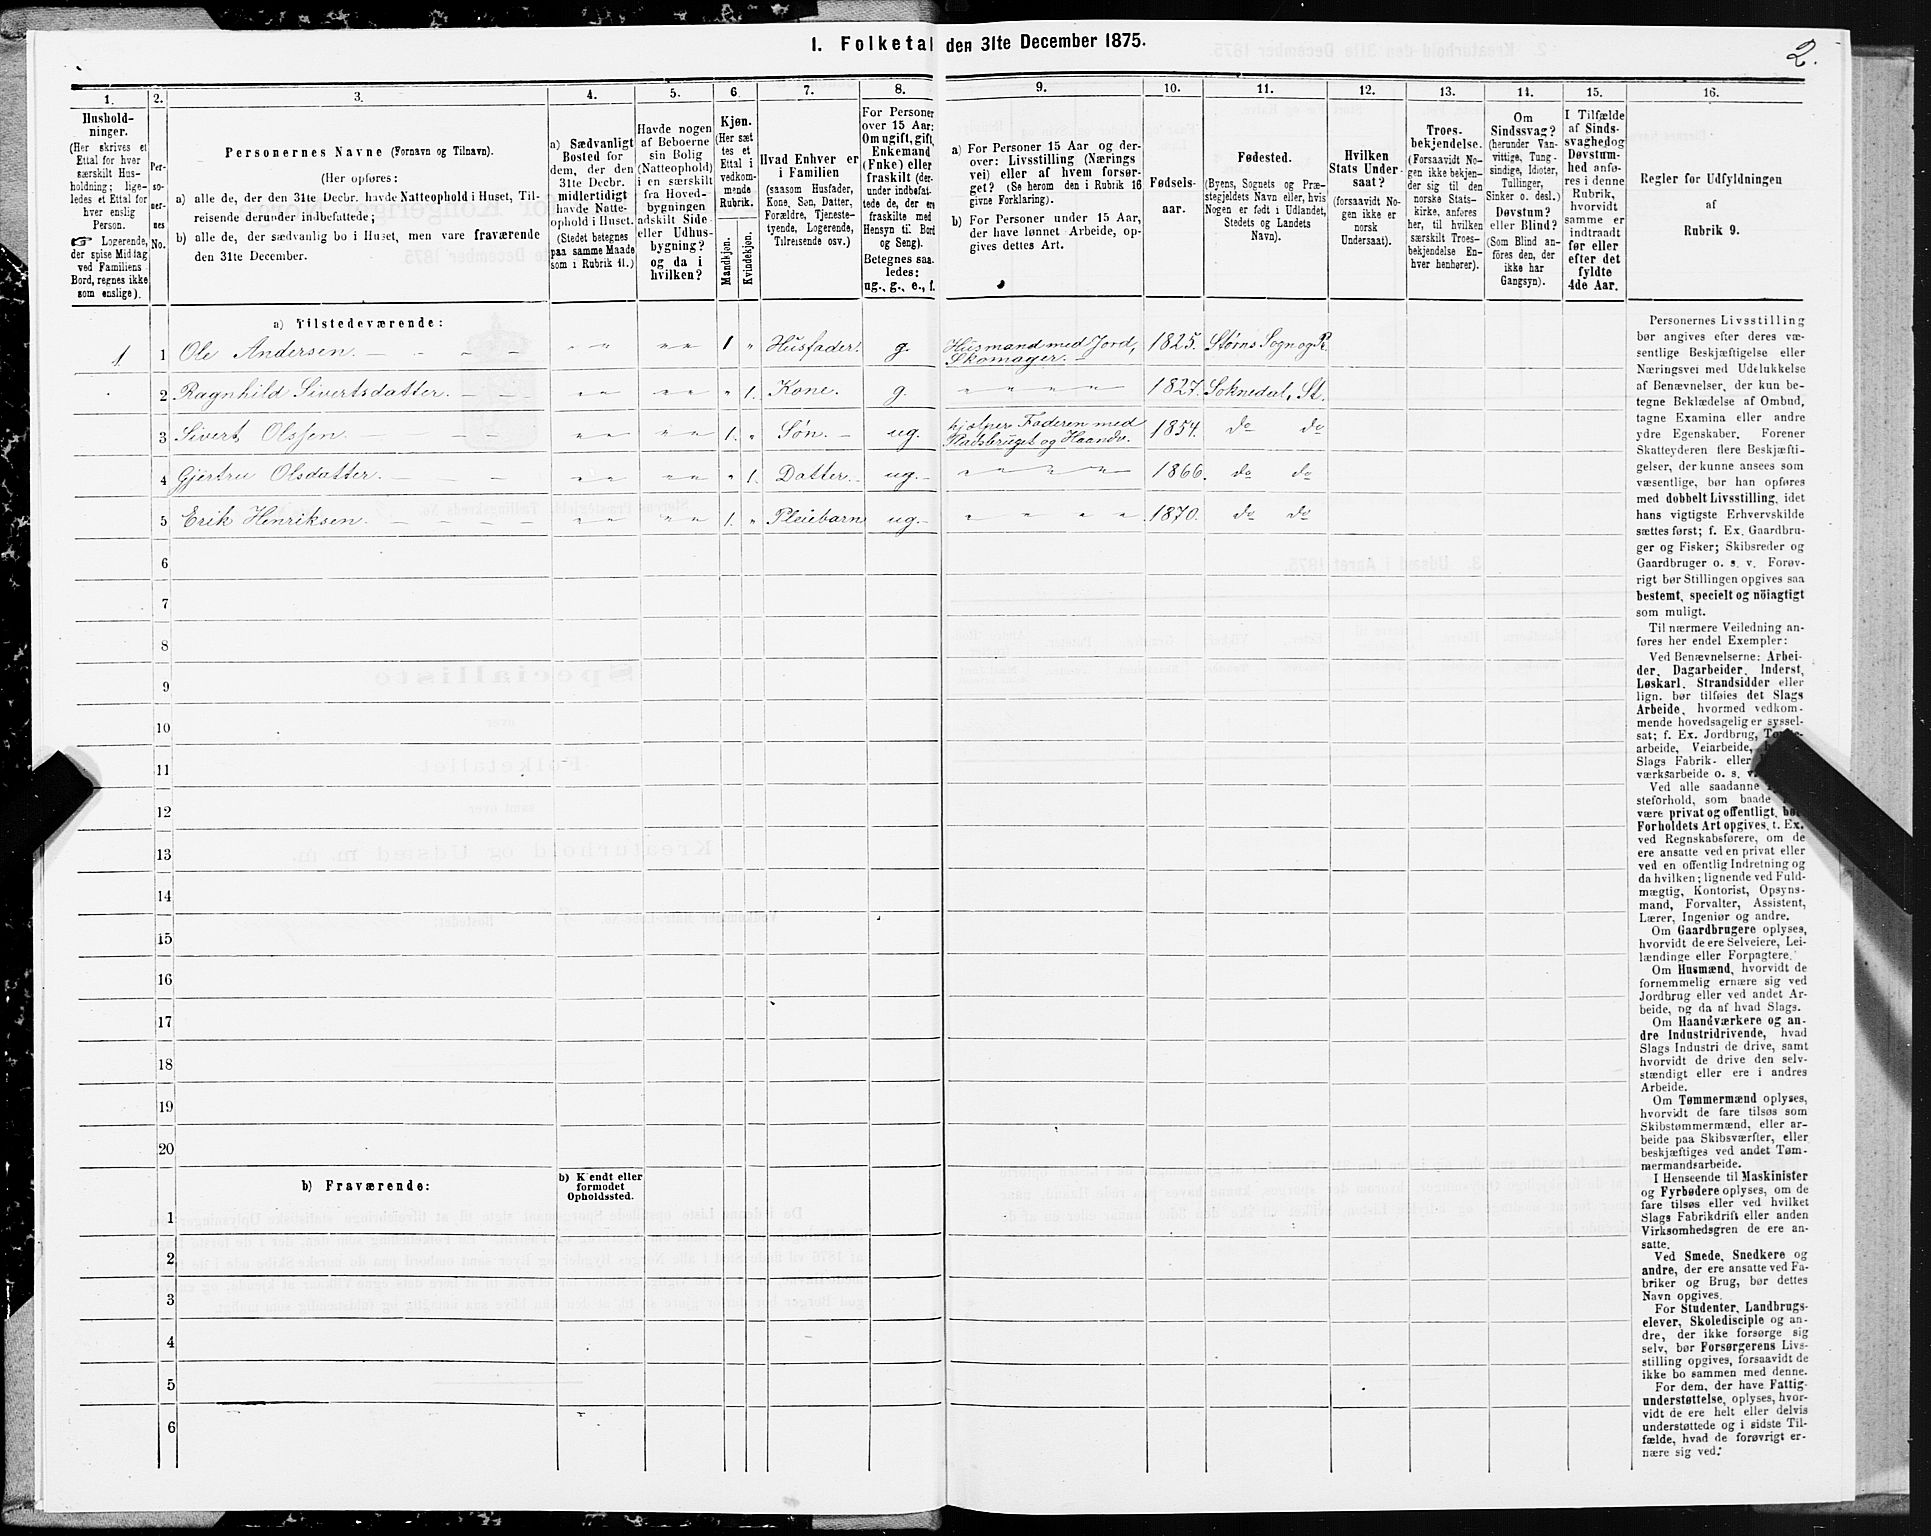 I. Folketal den 31te December 1875.
2.
1.
2.
3.
4.
5.
6.
7.
8.
9.
10.
11.
12.
13.
14.
15.
16.
Hushold-
ninger.
(Her skrives et
Ettal for hver
særskilt Hus-
holdning; lige-
ledes et Ettal for
hver enslig
Person.
☞ Logerende,
der spise Middag
ved Familiens
Bord, regnes ikke
som enslige).
Per-
so-
ner-
nes
No.
Personernes Navne (Fornavn og Tilnavn).
(Her opføres:
a) alle de, der den 31te Decbr. havde Natteophold i Huset, Til-
reisende derunder indbefattede;
b) alle de, der sædvanlig bo i Huset, men vare fraværende
den 31te December.
a) Sædvanligt
Bosted for
dem, der den
31te Decbr.
midlertidigt
havde Natte-
ophold i Huset.
(Stedet betegnes
paa samme Maade
som i Rubrik 11.)
Havde nogen
af Beboerne
sin Bolig
(Natteophold)
i en særskilt
fra Hoved-
bygningen
adskilt Side-
eller Udhus-
bygning?
og da i
hvilken?
Kjøn.
(Her sæt-
tes et
Ettal i
vedkom-
mende
Rubrik.
Mandkjøn.
Kvindekjøn.
Hvad Enhver er
i Familien
(saasom Husfader,
Kone, Søn, Datter,
Forældre, Tjeneste-
tyende, Logerende,
Tilreisende osv.)
For Personer
over 15 Aar:
Om ugift, gift,
Enkemand
(Enke) eller
fraskilt (der-
under indbefat-
tede de, der ere
fraskilte med
Hensyn til Bord
og Seng).
Betegnes saa-
ledes:
ug., g., e., f.
a) For Personer 15 Aar og der-
over: Livsstilling (Nærings-
vei) eller af hvem forsør-
get? (Se herom den i Rubrik 16
givne Forklaring).
b) For Personer under 15 Aar,
der have lønnet Arbeide, op-
gives dettes Art.
Fødsels-
aar.
Fødested.
(Byens, Sognets og Præ-
stegjeldets Navn eller, hvis
Nogen er født i Udlandet,
Stedets og Landets
Navn).
Hvilken
Stats Under-
saat?
(forsaavidt No-
gen ikke er
norsk
Undersaat).
Troes-
bekjendelse.
(Forsaavidt No-
gen ikke bekjen-
der sig til den
norske Stats-
kirke, anføres
her, til hvilken
særskilt Troes-
bekjendelse En-
hver henhører).
Om
Sindssvag?
(herunder Van-
vittige, Tung-
sindige, Idioter,
Tullinger,
Sinker o. desl.)
Døvstum?
eller Blind?
(Som Blind an-
føres den, der
ikke har
Gangsyn).
I Tilfælde
af Sinds-
svaghed og
Døvstum-
hed anfø-
res i denne
Rubrik,
hvorvidt
samme er
indtraadt
før eller
efter det
fyldte
4de Aar.
Regler for Udfyldningen
af
Rubrik 9.
a) Tilstedeværende:
1 1 Ole Andersen. „ „ „ „ 1 „ Husfader. g. Husmand med Jord,
Skomager. 1825. Størns Sogn og Pr.
2 Ragnhild Sivertsdatter. „ „ „ „ „ 1. Kone. g. „ „ „ „ 1827. Soknedal, St.
3 Sivert Olssen. „ „ „ „ 1. „ Søn. ug. hjælper Faderen med
Pladsbruget og Haandv. 1854. do do
4 Gjertru Olsdatter. „ „ „ „ „ 1. Datter. ug. „ „ „ „ 1866. do do
5 Erik Henriksen. „ „ „ „ 1. „ Pleiebarn ug. „ „ „ „ 1870. do do
6
7
8
9
10
11
12
13
14
15
16
17
18
19
20
b) Fraværende:
b) Kjendt eller
formodet
Opholdssted.
1
2
3
4
5
6
Personernes Livsstilling
bør angives efter deres væ-
sentlige Beskjæftigelse eller
Næringsvei med Udelukkelse
af Benævnelser, der kun be-
tegne Beklædelse af Ombud,
tagne Examina eller andre
ydre Egenskaber. Forener
Skatteyderen flere Beskjæfti-
gelser, der kunne ansees som
væsentlige, bør han opføres
med dobbelt Livsstilling, idet
hans vigtigste Erhvervskilde
sættes først; f. Ex. Gaardbru-
ger og Fisker; Skibsreder og
Gaardbruger o. s. v. Forøv-
rigt bør Stillingen opgives saa
bestemt, specielt og nöiagtigt
som muligt.
Til nærmere Veiledning an-
føres her endel Exempler:
Ved Benævnelserne: Arbei-
der, Dagarbeider, Inderst,
Løskarl, Strandsidder eller
lign. bør tilføies det Slags
Arbeide, hvormed vedkom-
mende hovedsagelig er syssel-
sat; f. Ex. Jordbrug,
arbeide, Veiarbeide,
Slags Fabrik- eller
værksarbeide o. s. v.
Ved alle saadanne
steforhold, som baade
være privat og offentligt, bør
Forholdets Art opgives, t. Ex.
ved Regnskabsførere, om de
ere ansatte ved en privat eller
ved en offentlig Indretning og
da hvilken; lignende ved Fuld-
mægtig, Kontorist, Opsyns-
mand, Forvalter, Assistent,
Lærer, Ingeniør og andre.
Om Gaardbrugere oplyses,
hvorvidt de ere Selveiere, Lei-
lændinge eller Forpagtere.
Om Husmænd, hvorvidt de
fornemmelig ernære sig ved
Jordbrug eller ved andet Ar-
beide, og da af hvad Slags.
Om Haandværkere og an-
dre Industridrivende, hvad
Slags Industri de drive, samt
hvorvidt de drive den selv-
stændigt eller ere i andres
Arbeide.
Om Tømmermænd oplyses,
hvorvidt de fare tilsøs som
Skibstømmermænd, eller ar-
beide paa Skibsværfter, eller
beskjæftiges ved andet Tøm-
mermandsarbeide.
I Henseende til Maskinister
og Fyrbødere oplyses, om de
fare tilsøs eller ved hvilket
Slags Fabrikdrift eller anden
Virksomhedsgren de ere an-
satte.
Ved Smede, Snedkere og
andre, der ere ansatte ved Fa-
briker og Brug, bør dettes
Navn opgives.
For Studenter, Landbrugs-
elever, Skoledisciple og an-
dre, der ikke forsørge sig
selv, bør Forsørgerens Livs-
stilling opgives, forsaavidt de
ikke bo sammen med denne.
For dem, der have Fattig-
understøttelse, oplyses, hvor-
vidt de ere helt eller delvis
understøttede og i sidste Til-
fælde, hvad de forøvrigt er-
nære sig ved.